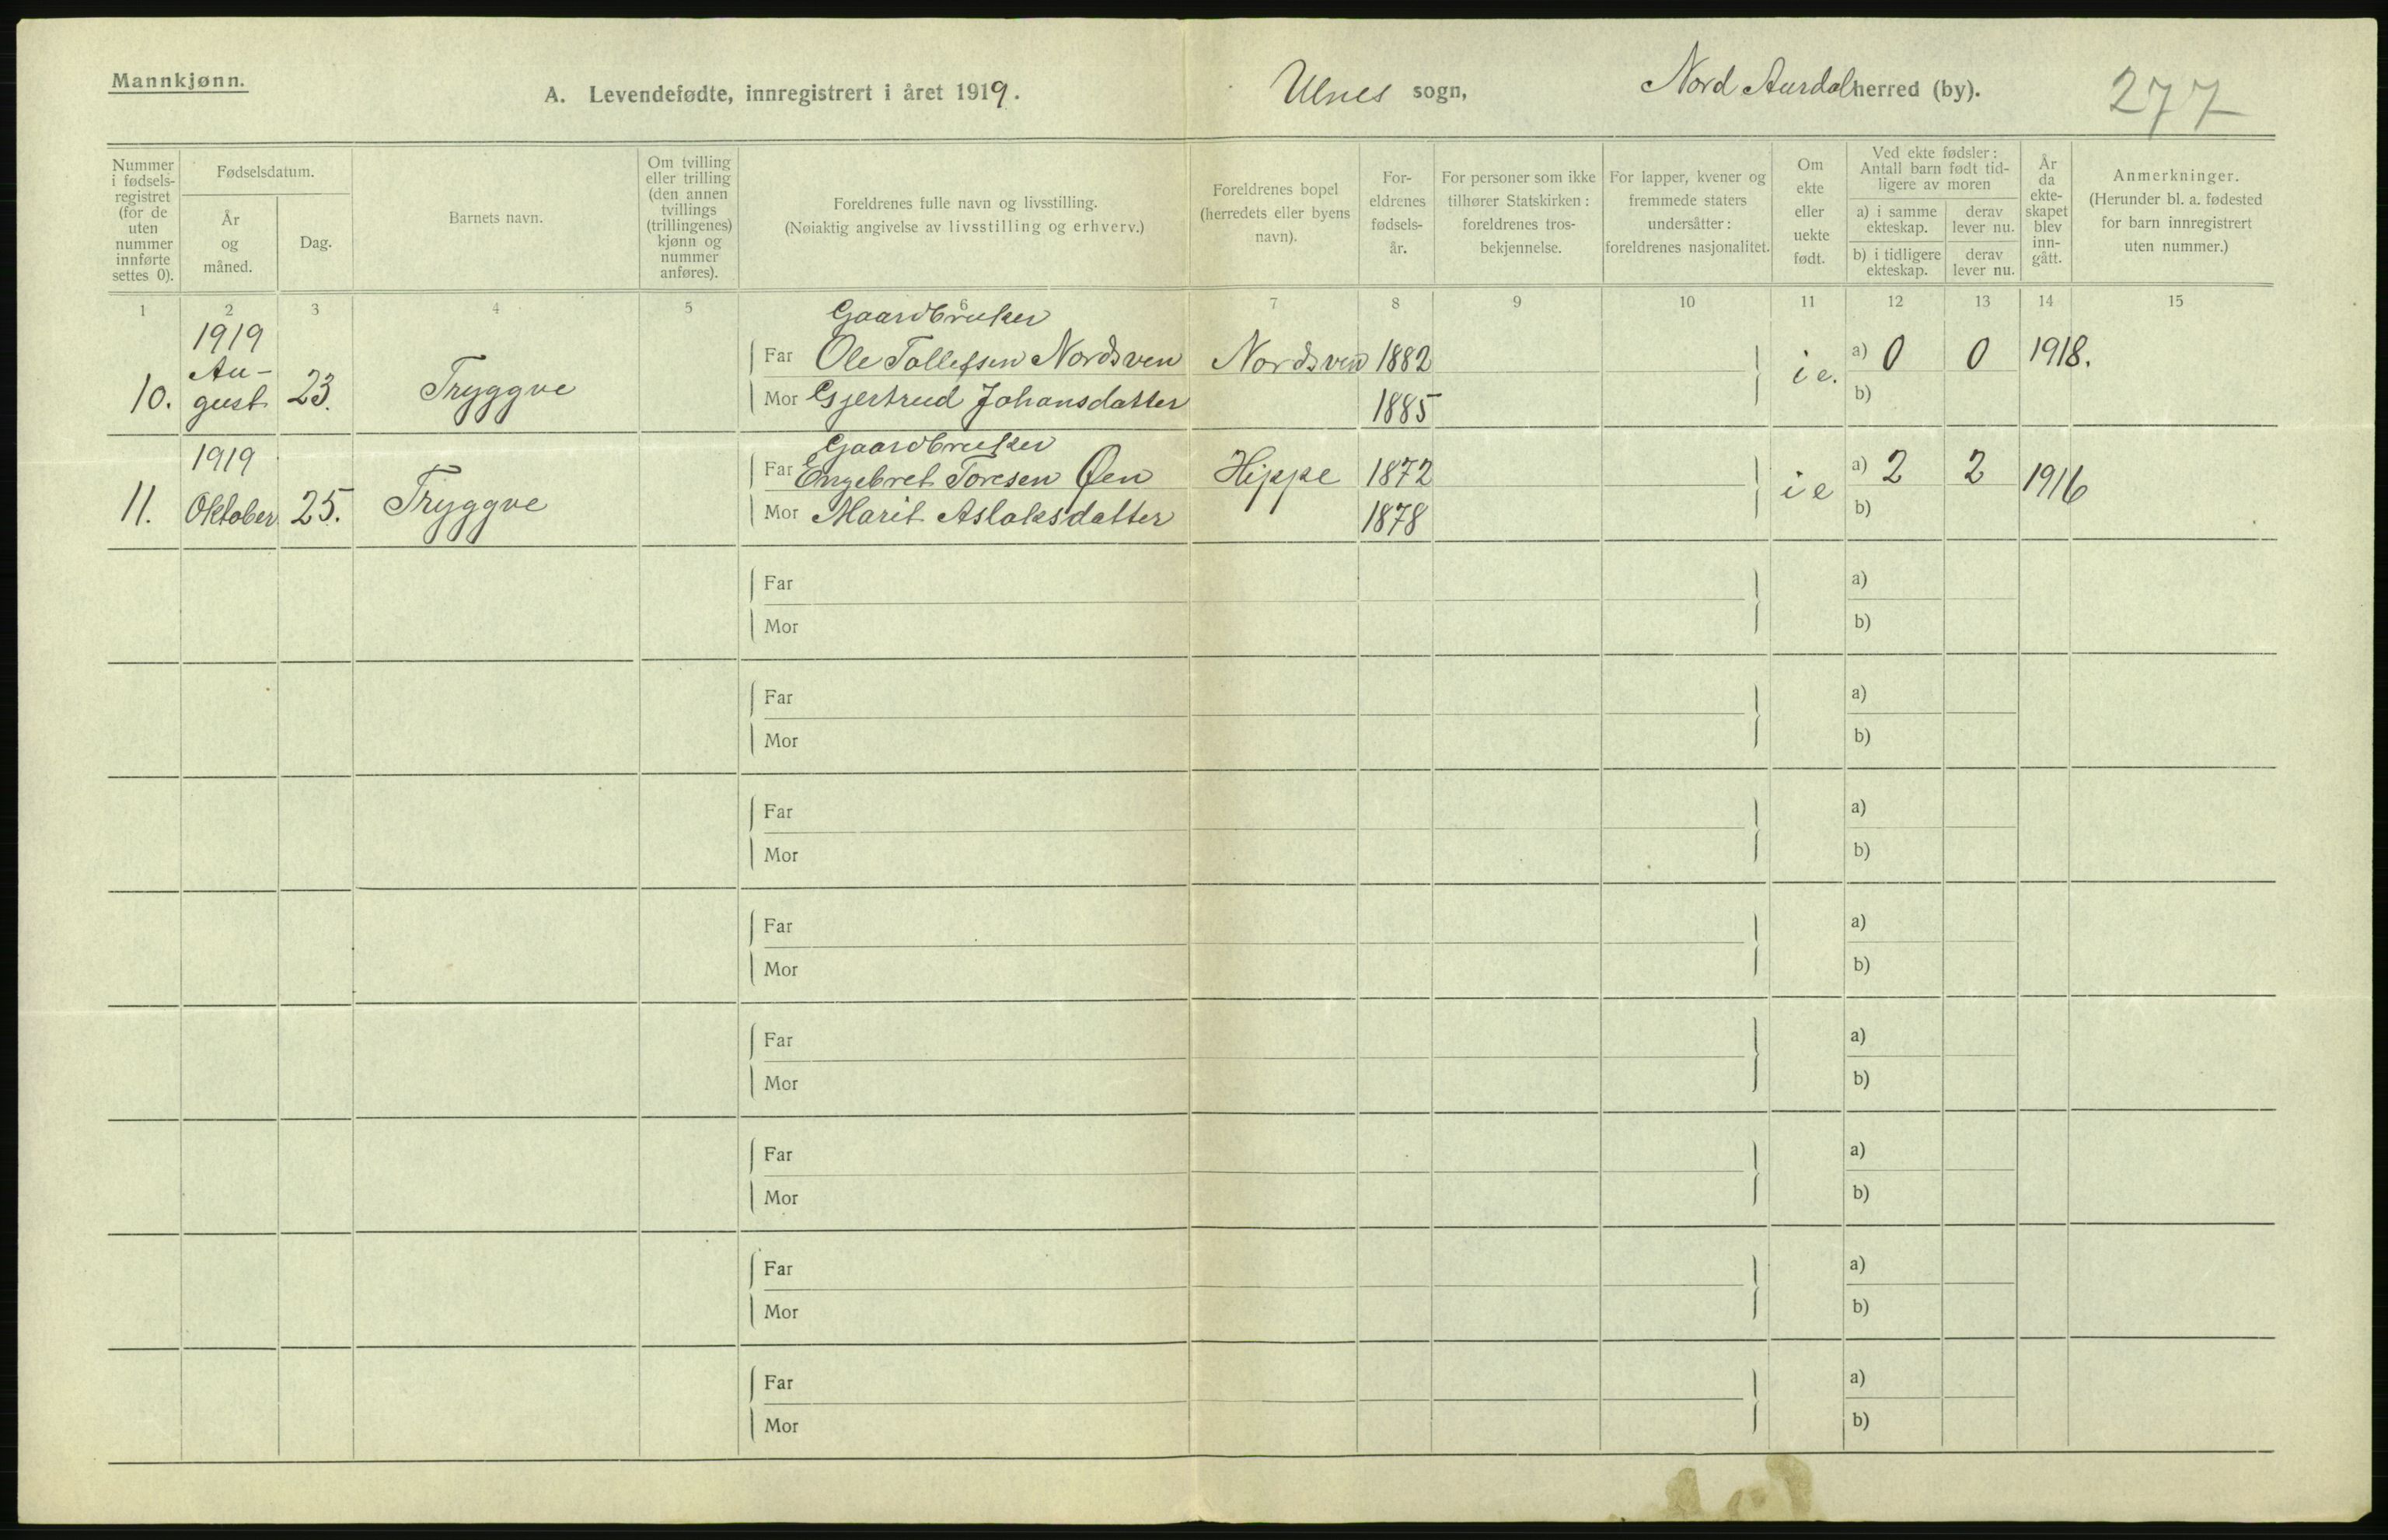 Mannkjønn.
A. Levendefødte, innregistrert i året 1919.
Ulnes sogn,
Nord Aurdal herred (by).
277
Nummer i fødsels-registret (for de uten nummer innførte settes 0).
Fødselsdatum.
År og måned.
Dag.
Barnets navn.
Om tvilling eller trilling (den annen tvillings (trillingenes) kjønn og nummer anføres).
Foreldrenes fulle navn og livsstilling.
(Nøiaktig angivelse av livsstilling og erhverv.)
Foreldrenes bopel (herredets eller byens navn).
For-eldrenes fødsels-år.
For personer som ikke tilhører Statskirken: foreldrenes tros-bekjennelse.
For lapper, kvener og fremmede staters undersåtter: foreldrenes nasjonalitet.
Om ekte eller uekte født.
Ved ekte fødsler: Antall barn født tid-ligere av moren
a) i samme ekteskap.
derav lever nu.
b) i tidligere ekteskap.
derav lever nu.
År da ekte-skapet blev inn-gått.
Anmerkninger.
(Herunder bl. a. fødested for barn innregistrert uten nummer.)
1 2 3 4 5 6 7 8 9 10 11 12 13 14 15
1919
Gaardbruker
10. Au-gust 23. Tryggve
Far Ole Tollefsen Nordsven Nordsven 1882 i e. a) 0 0 1918.
Mor Gjertrud Johansdatter 1885 b)
1919
Gaardbruker
11. Oktober 25. Tryggve
Far Engebret Toresen Øen Hippe 1872 i e a) 2 2 1916
Mor Marit Aslaksdatter 1878 b)
Far a)
Mor b)
Far a)
Mor b)
Far a)
Mor b)
Far a)
Mor b)
Far a)
Mor b)
Far a)
Mor b)
Far a)
Mor b)
Far a)
Mor b)